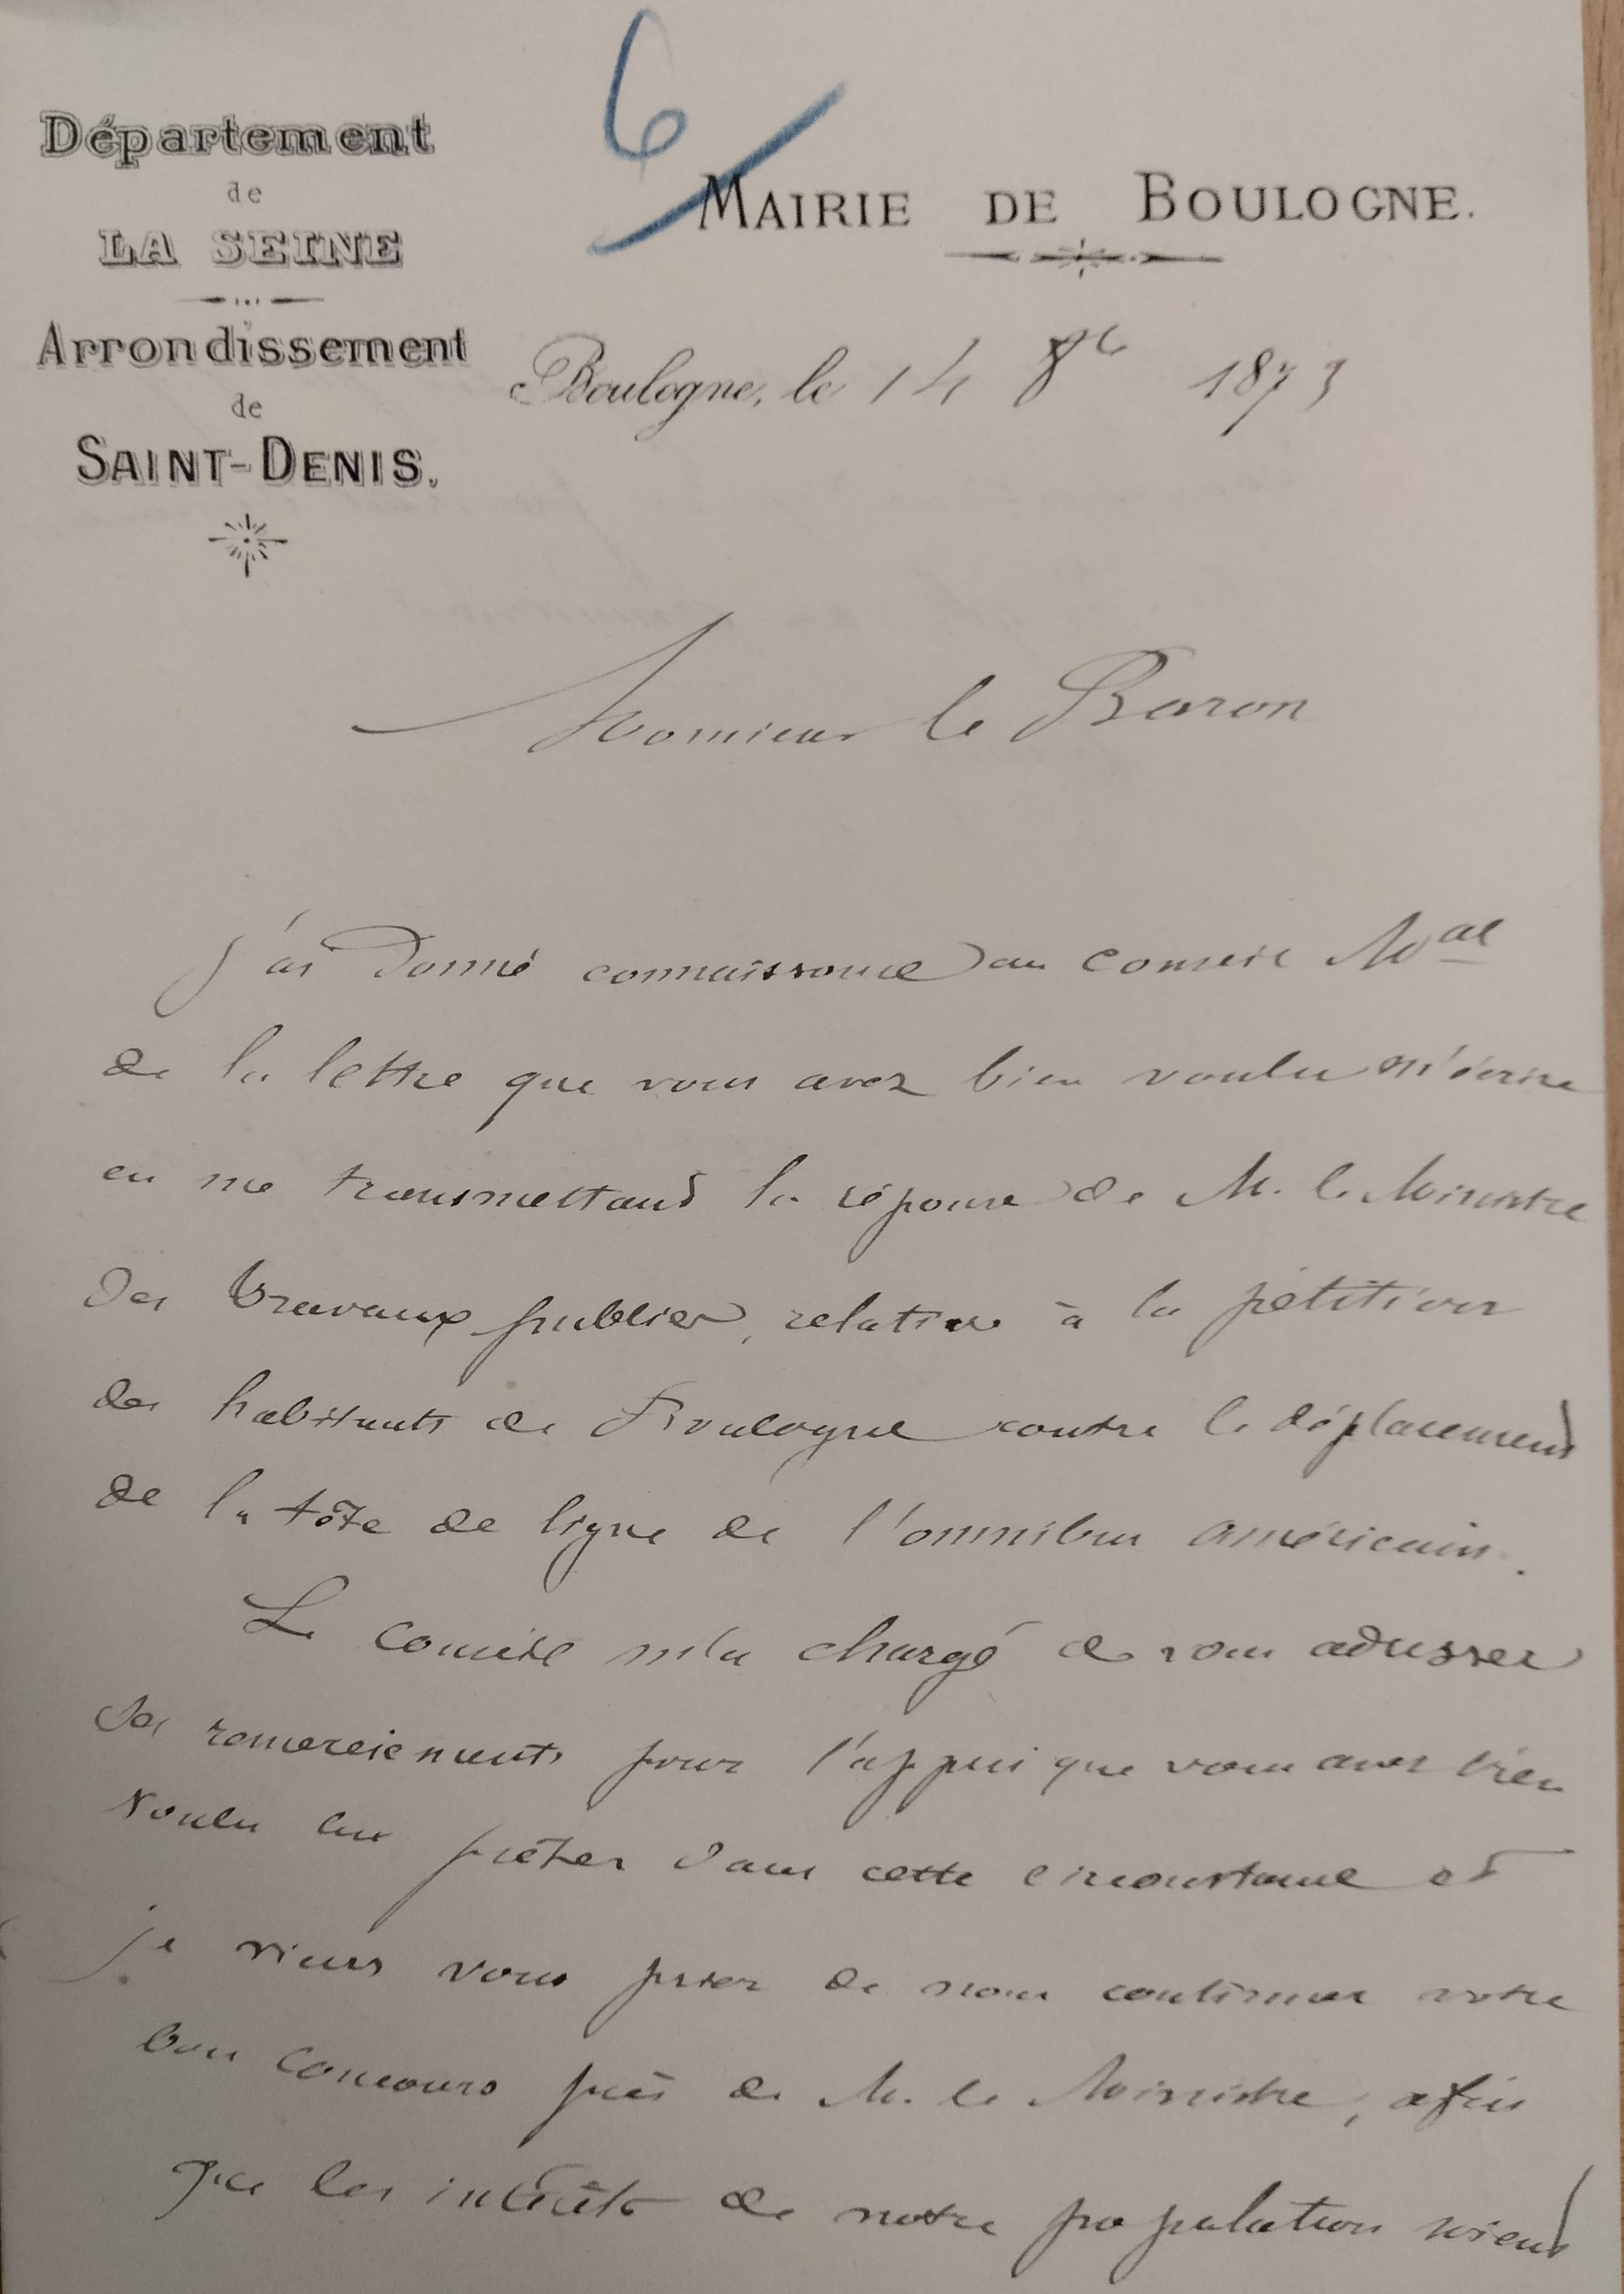 6
Département
de
LA SEINE
Arrondissement
de
SAINT-DENIS.
MAIRIE DE BOULOGNE.
Boulogne, le 14 8bre 1873
Monsieur le Baron
J'ai donné connaissance au conseil Mal
de la lettre que vous avez bien voulu m'écrire
en me transmettant la réponse de M. le Ministre
des travaux publics, relative à la pétition
des habitants de Boulogne contre le déplacement
de la tête de ligne de l'omnibus américain.
Le conseil m'a chargé de vous adresser
ses remerciements pour l'appui que vous avez bien
voulu lui prêter dans cette circonstance et
je viens vous prier de nous continuer votre
bon concours près de M. le Ministre, afin
que les intérêts de notre population soient